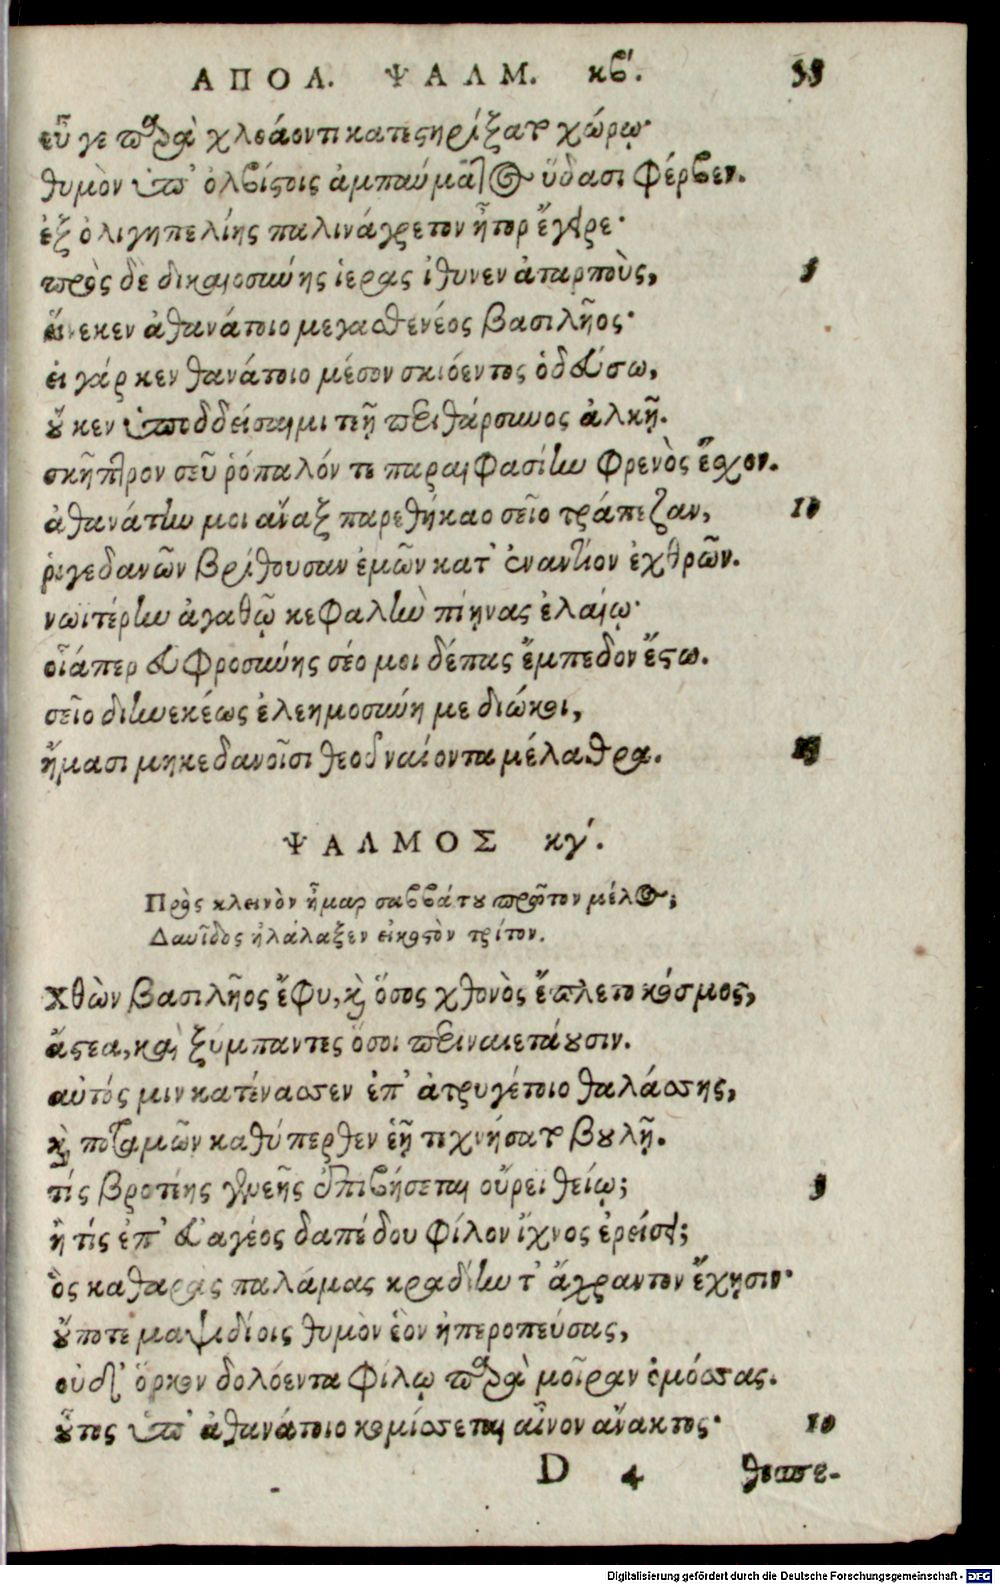 ΑΠΟΛ. ΨΑΛΜ. κβ΄. 55
εὖ γε παρὰ χλοάοντι κατεστήριξατο χώρῳ·
θυμὸν ὑπ' ὀλβίστοις ἀμπαύματος ὕδασι φέρβεν.
ἐξ ὀλιγηπελίης παλινάγρετον ἦτορ ἔγειρε·
πρὸς δὲ δικαιοσύνης ἱερὰς ἴθυνεν ἀταρποὺς, 5
εἵνεκεν ἀθανάτοιο μεγασθενέος βασιλῆος·
εἰ γάρ κεν θανάτοιο μέσον σκιόεντος ὁδεύσω,
οὔ κεν ὑποδδείσαιμι τεῇ περιθάρσυνος ἀλκῇ.
σκῆπτρον σεῦ ῥόπαλόν τε παραιφασίην φρενὸς ἔσχον.
ἀθανάτην μοι ἄναξ παρεθήκαο σεῖο τράπεζαν, 10
ῥιγεδανῶν βρίθουσαν ἐμῶν κατ' ἐναντίον ἐχθρῶν.
νωιτέρην ἀγαθῷ κεφαλὴν πίῃνας ἐλαίῳ·
οἷάπερ εὐφροσύνης σέο μοι δέπας ἔμπεδον ἔστω.
σεῖο διηνεκέως ἐλεημοσύνη με διώκοι,
ἤμασι μηκεδανοῖσι θεοῦ ναίοντα μέλαθρα. 15
ΨΑΛΜΟΣ κγ΄.
Πρὸς κλεινὸν ἦμαρ σαββάτου πρῶτον μέλος;
Δαυῖδος ἠλάλαξεν εἰκοστὸν τρίτον.
Χθὼν βασιλῆος ἔφυ, καὶ ὅσος χθονὸς ἔπλετο κόσμος,
ἄστεα, καὶ ξύμπαντες ὅσοι περιναιετάουσιν.
αὐτός μιν κατένασσεν ἐπ' ἀτρυγέτοιο θαλάσσης,
καὶ ποταμῶν καθύπερθεν ἑῇ τεχνήσατο βουλῇ.
τίς βροτέης γενεῆς ἐπιβήσεται οὔρεϊ θείῳ; 5
ἢ τίς ἐπ' εὐαγέος δαπέδου φίλον ἴχνος ἐρείσει;
ὃς καθαρὰς παλάμας κραδίην τ' ἄχραντον ἔχῃσιν·
οὔποτε μαψιδίοις θυμὸν ἑὸν ἠπεροπεύσας,
οὐδ' ὅρκον δολόεντα φίλῳ παρὰ μοῖραν ὀμόσσας.
οὗτος ὑπ' ἀθανάτοιο κομίσσεται αἶνον ἄνακτος· 10
D 4 θεσπε-
Digitalisierung gefördert durch die Deutsche Forschungsgemeinschaft - DFG